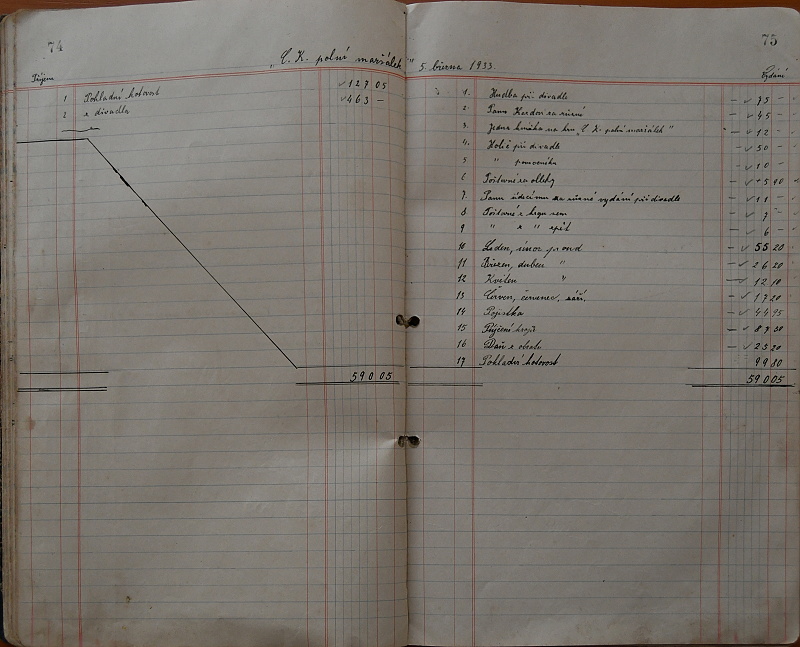 74
„C. K. polní maršálek"
Příjem
1 Pokladní hotovost 127 05
2 z divadla 463 —
590 05
75
5. března 1933.
Vydání
1. Hudba při divadle — 75 —
2. Panu — 45 —
3. Jedna knížka na hru „C. K. polní maršálek" — 12 —
4. Holič při divadle — 50 —
5 " pomocníka — 10 —
6 Poštovné za obleky 90
7. Panu za různé vydání při divadle — 11 —
8 Poštovné z — 7 —
9 " z " zpět — 6 —
10 Leden, únor — 55 20
11 Březen, duben " — 26 20
12 Květen " — 12 10
13 Červen, červenec, září. — 17 20
14 Pojistka — 44 95
15 Půjčení —
16 Daň z obratu — 23 20
17 Pokladní hotovost 99 80
590 05